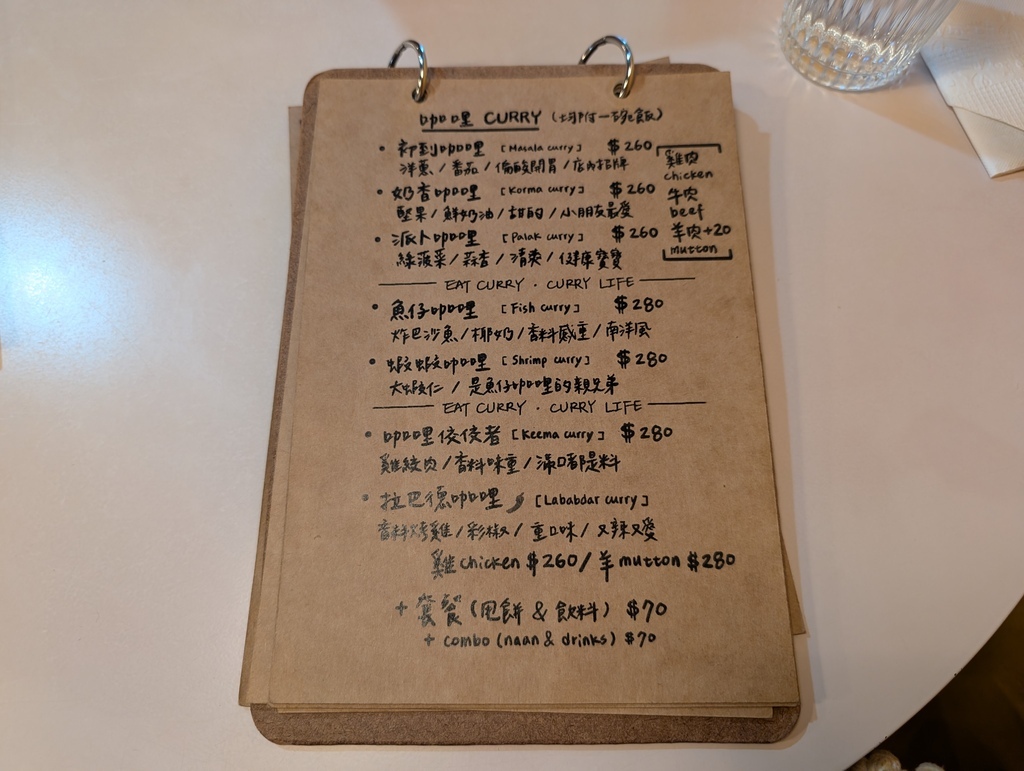 咖哩 CURRY (均附一碗飯)
• 初到咖哩 [Masala curry] $260
洋蔥 / 番茄 / 偏酸開胃 / 店內招牌
• 奶香咖哩 [Korma curry] $260
堅果 / 鮮奶油 / 甜的 / 小朋友最愛
• 派卜咖哩 [Palak curry] $260
綠菠菜 / 蒜香 / 清爽 / 健康寶寶
雞肉
chicken
牛肉
beef
羊肉+20
mutton
EAT CURRY · CURRY LIFE
• 魚仔咖哩 [Fish curry] $280
炸巴沙魚 / 椰奶 / 香料感重 / 南洋風
• 蝦蝦咖哩 [Shrimp curry] $280
大蝦仁 / 是魚仔咖哩的親兄弟
EAT CURRY · CURRY LIFE
• 咖哩佼佼者 [Keema curry] $280
雞絞肉 / 香料味重 / 滿口都是料
• 拉巴德咖哩 [Lababdar curry]
香料烤雞 / 彩椒 / 重口味 / 又辣又愛
雞 chicken $260 / 羊 mutton $280
+ 套餐 (甩餅 & 飲料) $70
+ combo (naan & drinks) $70